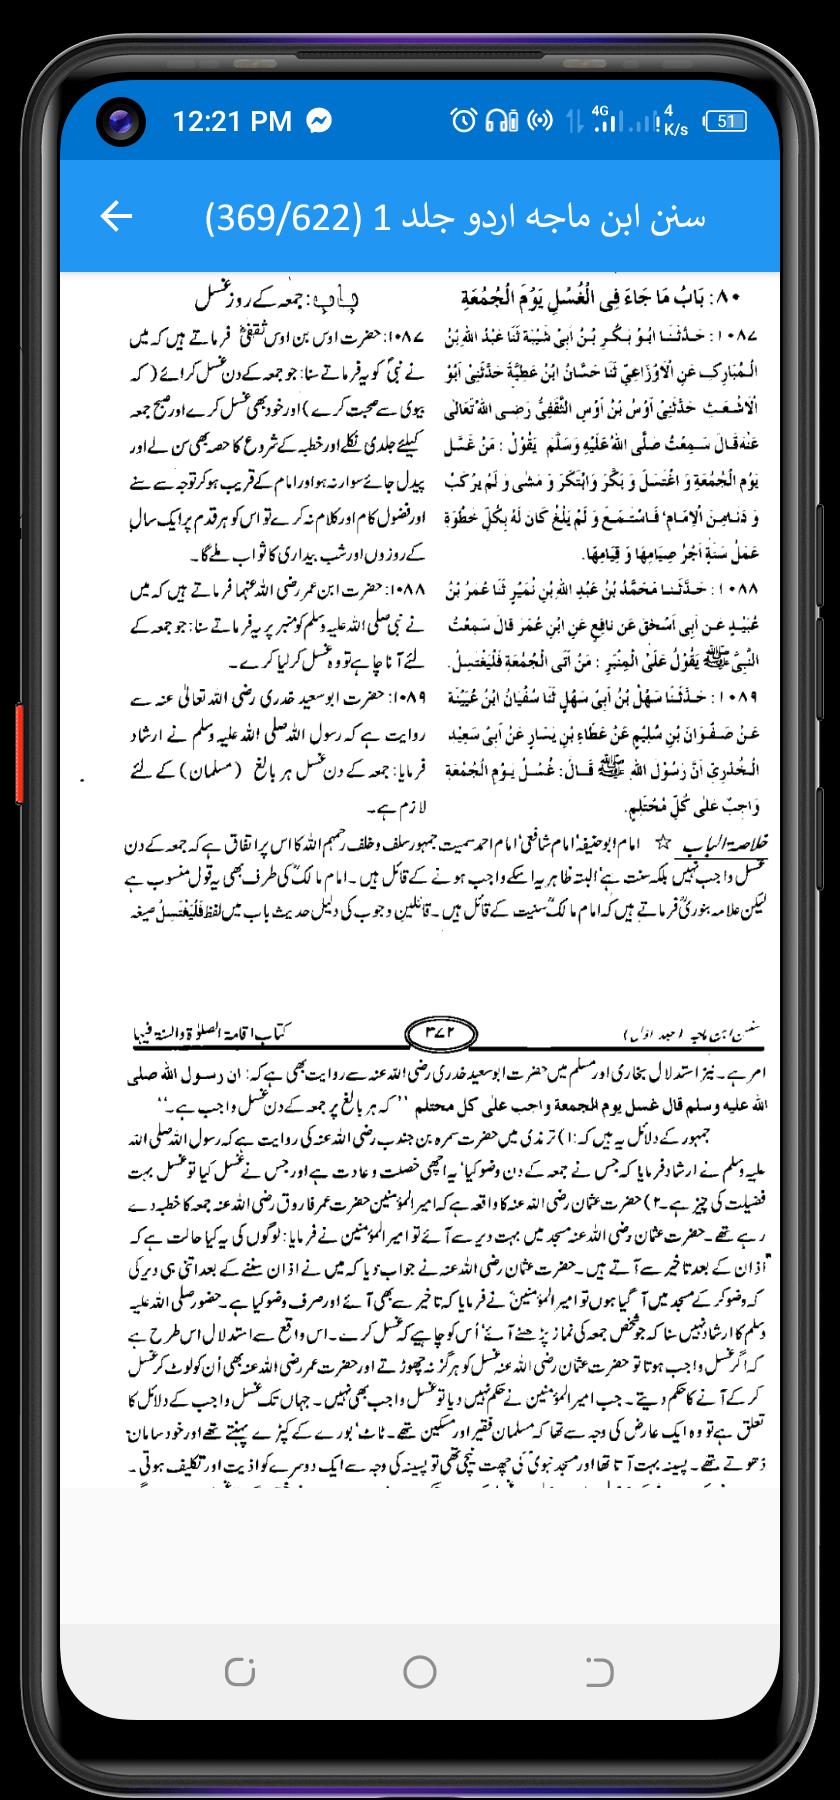 12:21 PM
4G
4 K/s
51
سنن ابن ماجه اردو جلد 1 (369/622)
۸۰: بَابُ مَا جَاءَ فِی الْغُسْلِ یَوْمَ الْجُمُعَةِ
۱۰۸۷: حَدَّثَنَا اَبُوْ بَکْرِ بْنُ اَبِیْ شَیْبَةَ ثَنَا عَبْدُ اللهِ بْنُ
الْمُبَارَکِ عَنِ الْاَوْزَاعِیِّ ثَنَا حَسَّانُ ابْنُ عَطِیَّةَ حَدَّثَنِیْ اَبُوْ
الْاَشْعَثِ حَدَّثَنِیْ اَوْسُ بْنُ اَوْسِ الثَّقَفِیُّ رَضِی اللهُ تَعَالٰی
عَنْهُ قَالَ سَمِعْتُ صَلَّی اللهُ عَلَیْهِ وَسَلَّمَ یَقُوْلُ : مَنْ غَسَّلَ
یَوْمَ الْجُمُعَةِ وَ اغْتَسَلَ وَ بَکَّرَ وَابْتَکَرَ وَ مَشٰی وَ لَمْ یَرْکَبْ
وَ دَنَا مِنَ الْاِمَامِ فَاسْتَمَعَ وَ لَمْ یَلْغُ کَانَ لَهُ بِکُلِّ خَطْوَةٍ
عَمَلُ سَنَةٍ اَجْرُ صِیَامِهَا وَ قِیَامِهَا.
۱۰۸۸: حَدَّثَنَا مُحَمَّدُ بْنُ عَبْدِ اللهِ بْنِ نُمَیْرٍ ثَنَا عُمَرُ بْنُ
عُبَیْدٍ عَنْ اَبِی اَسْحٰقَ عَنْ نَافِعٍ عَنِ ابْنِ عُمَرَ قَالَ سَمِعْتُ
النَّبِیَّ ﷺ یَقُوْلُ عَلَی الْمِنْبَرِ : مَنْ اَتَی الْجُمُعَةَ فَلْیَغْتَسِلْ.
۱۰۸۹: حَدَّثَنَا سَهْلُ بْنُ اَبِیْ سَهْلٍ ثَنَا سُفْیَانُ ابْنُ عُیَیْنَةَ
عَنْ صَفْوَانَ بْنِ سُلَیْمٍ عَنْ عَطَاءِ بْنِ یَسَارٍ عَنْ اَبِیْ سَعِیْدٍ
الْخُدْرِیِّ اَنَّ رَسُوْلَ اللهِ ﷺ قَالَ: غُسْلُ یَوْمِ الْجُمُعَةِ
وَاجِبٌ عَلٰی کُلِّ مُحْتَلِمٍ.
باب: جمعہ کے روز غسل
۱۰۸۷: حضرت اوس بن اوس ثقفیؓ فرماتے ہیں کہ میں
نے نبیؐ کو یہ فرماتے سنا: جو جمعہ کے دن غسل کرائے (کہ
بیوی سے صحبت کرے) اور خود بھی غسل کرے اور صبح جمعہ
کیلئے جلدی نکلے اور خطبہ کے شروع کا حصہ بھی سن لے اور
پیدل جائے سوار نہ ہو اور امام کے قریب ہو کر توجہ سے سنے
اور فضول کام اور کلام نہ کرے تو اس کو ہر قدم پر ایک سال
کے روزوں اور شب بیداری کا ثواب ملے گا۔
۱۰۸۸: حضرت ابن عمر رضی اللہ عنہما فرماتے ہیں کہ میں
نے نبی صلی اللہ علیہ وسلم کو منبر پر یہ فرماتے سنا: جو جمعہ کے
لئے آنا چاہے تو وہ غسل کر لیا کرے۔
۱۰۸۹: حضرت ابو سعید خدری رضی اللہ تعالیٰ عنہ سے
روایت ہے کہ رسول اللہ صلی اللہ علیہ وسلم نے ارشاد
فرمایا: جمعہ کے دن غسل ہر بالغ (مسلمان) کے لئے
لازم ہے۔
خلاصۃ الباب ☆ امام ابو حنیفہ' امام شافعی' امام احمد سمیت جمہور سلف و خلف رحمہم اللہ کا اس پر اتفاق ہے کہ جمعہ کے دن
غسل واجب نہیں بلکہ سنت ہے' البتہ ظاہریہ اسکے واجب ہونے کے قائل ہیں۔ امام مالکؒ کی طرف بھی یہ قول منسوب ہے
لیکن علامہ بنوریؒ فرماتے ہیں کہ امام مالکؒ سنیت کے قائل ہیں۔ قائلین وجوب کی دلیل حدیث باب میں لفظ فَلْیَغْتَسِلْ صیغہ
سنن ابن ماجہ (جلد اوّل)
۳۷۲
کتاب اقامۃ الصلوٰۃ والسنۃ فیہا
امر ہے۔ نیز استدلال بخاری اور مسلم میں حضرت ابو سعید خدری رضی اللہ عنہ سے روایت بھی ہے کہ: ان رسول الله صلی
الله علیه وسلم قال غسل یوم الجمعة واجب علی کل محتلم '' کہ ہر بالغ پر جمعہ کے دن غسل واجب ہے۔''
جمہور کے دلائل یہ ہیں کہ: ۱) ترمذی میں حضرت سمرہ بن جندب رضی اللہ عنہ کی روایت ہے کہ رسول اللہ صلی اللہ
علیہ وسلم نے ارشاد فرمایا کہ جس نے جمعہ کے دن وضو کیا' یہ اچھی خصلت و عادت ہے اور جس نے غسل کیا تو غسل بہت
فضیلت کی چیز ہے۔ ۲) حضرت عثمان رضی اللہ عنہ کا واقعہ ہے کہ امیر المؤمنین حضرت عمر فاروق رضی اللہ عنہ جمعہ کا خطبہ دے
رہے تھے۔ حضرت عثمان رضی اللہ عنہ مسجد میں بہت دیر سے آئے تو امیر المؤمنین نے فرمایا: لوگوں کی یہ کیا حالت ہے کہ
اذان کے بعد تاخیر سے آتے ہیں۔ حضرت عثمان رضی اللہ عنہ نے جواب دیا کہ میں نے اذان سننے کے بعد اتنی ہی دیر کی
کہ وضو کر کے مسجد میں آ گیا ہوں تو امیر المؤمنینؓ نے فرمایا کہ تاخیر سے بھی آئے اور صرف وضو کیا ہے۔ حضور صلی اللہ علیہ
وسلم کا ارشاد نہیں سنا کہ جو شخص جمعہ کی نماز پڑھنے آئے' اُس کو چاہیے کہ غسل کرے۔ اس واقع سے استدلال اس طرح ہے
کہ اگر غسل واجب ہوتا تو حضرت عثمان رضی اللہ عنہ غسل کو ہرگز نہ چھوڑتے اور حضرت عمر رضی اللہ عنہ بھی اُن کو لوٹ کر غسل
کر کے آنے کا حکم دیتے۔ جب امیر المؤمنین نے حکم نہیں دیا تو غسل واجب بھی نہیں۔ جہاں تک غسل واجب کے دلائل کا
تعلق ہے تو وہ ایک عارض کی وجہ سے تھا کہ مسلمان فقیر اور مسکین تھے۔ ٹاٹ' بورے کے کپڑے پہنتے تھے اور خود سامان
ڈھوتے تھے۔ پسینہ بہت آتا تھا اور مسجد نبویؐ کی چھت نیچی تھی تو پسینہ کی وجہ سے ایک دوسرے کو اذیت اور تکلیف ہوتی۔